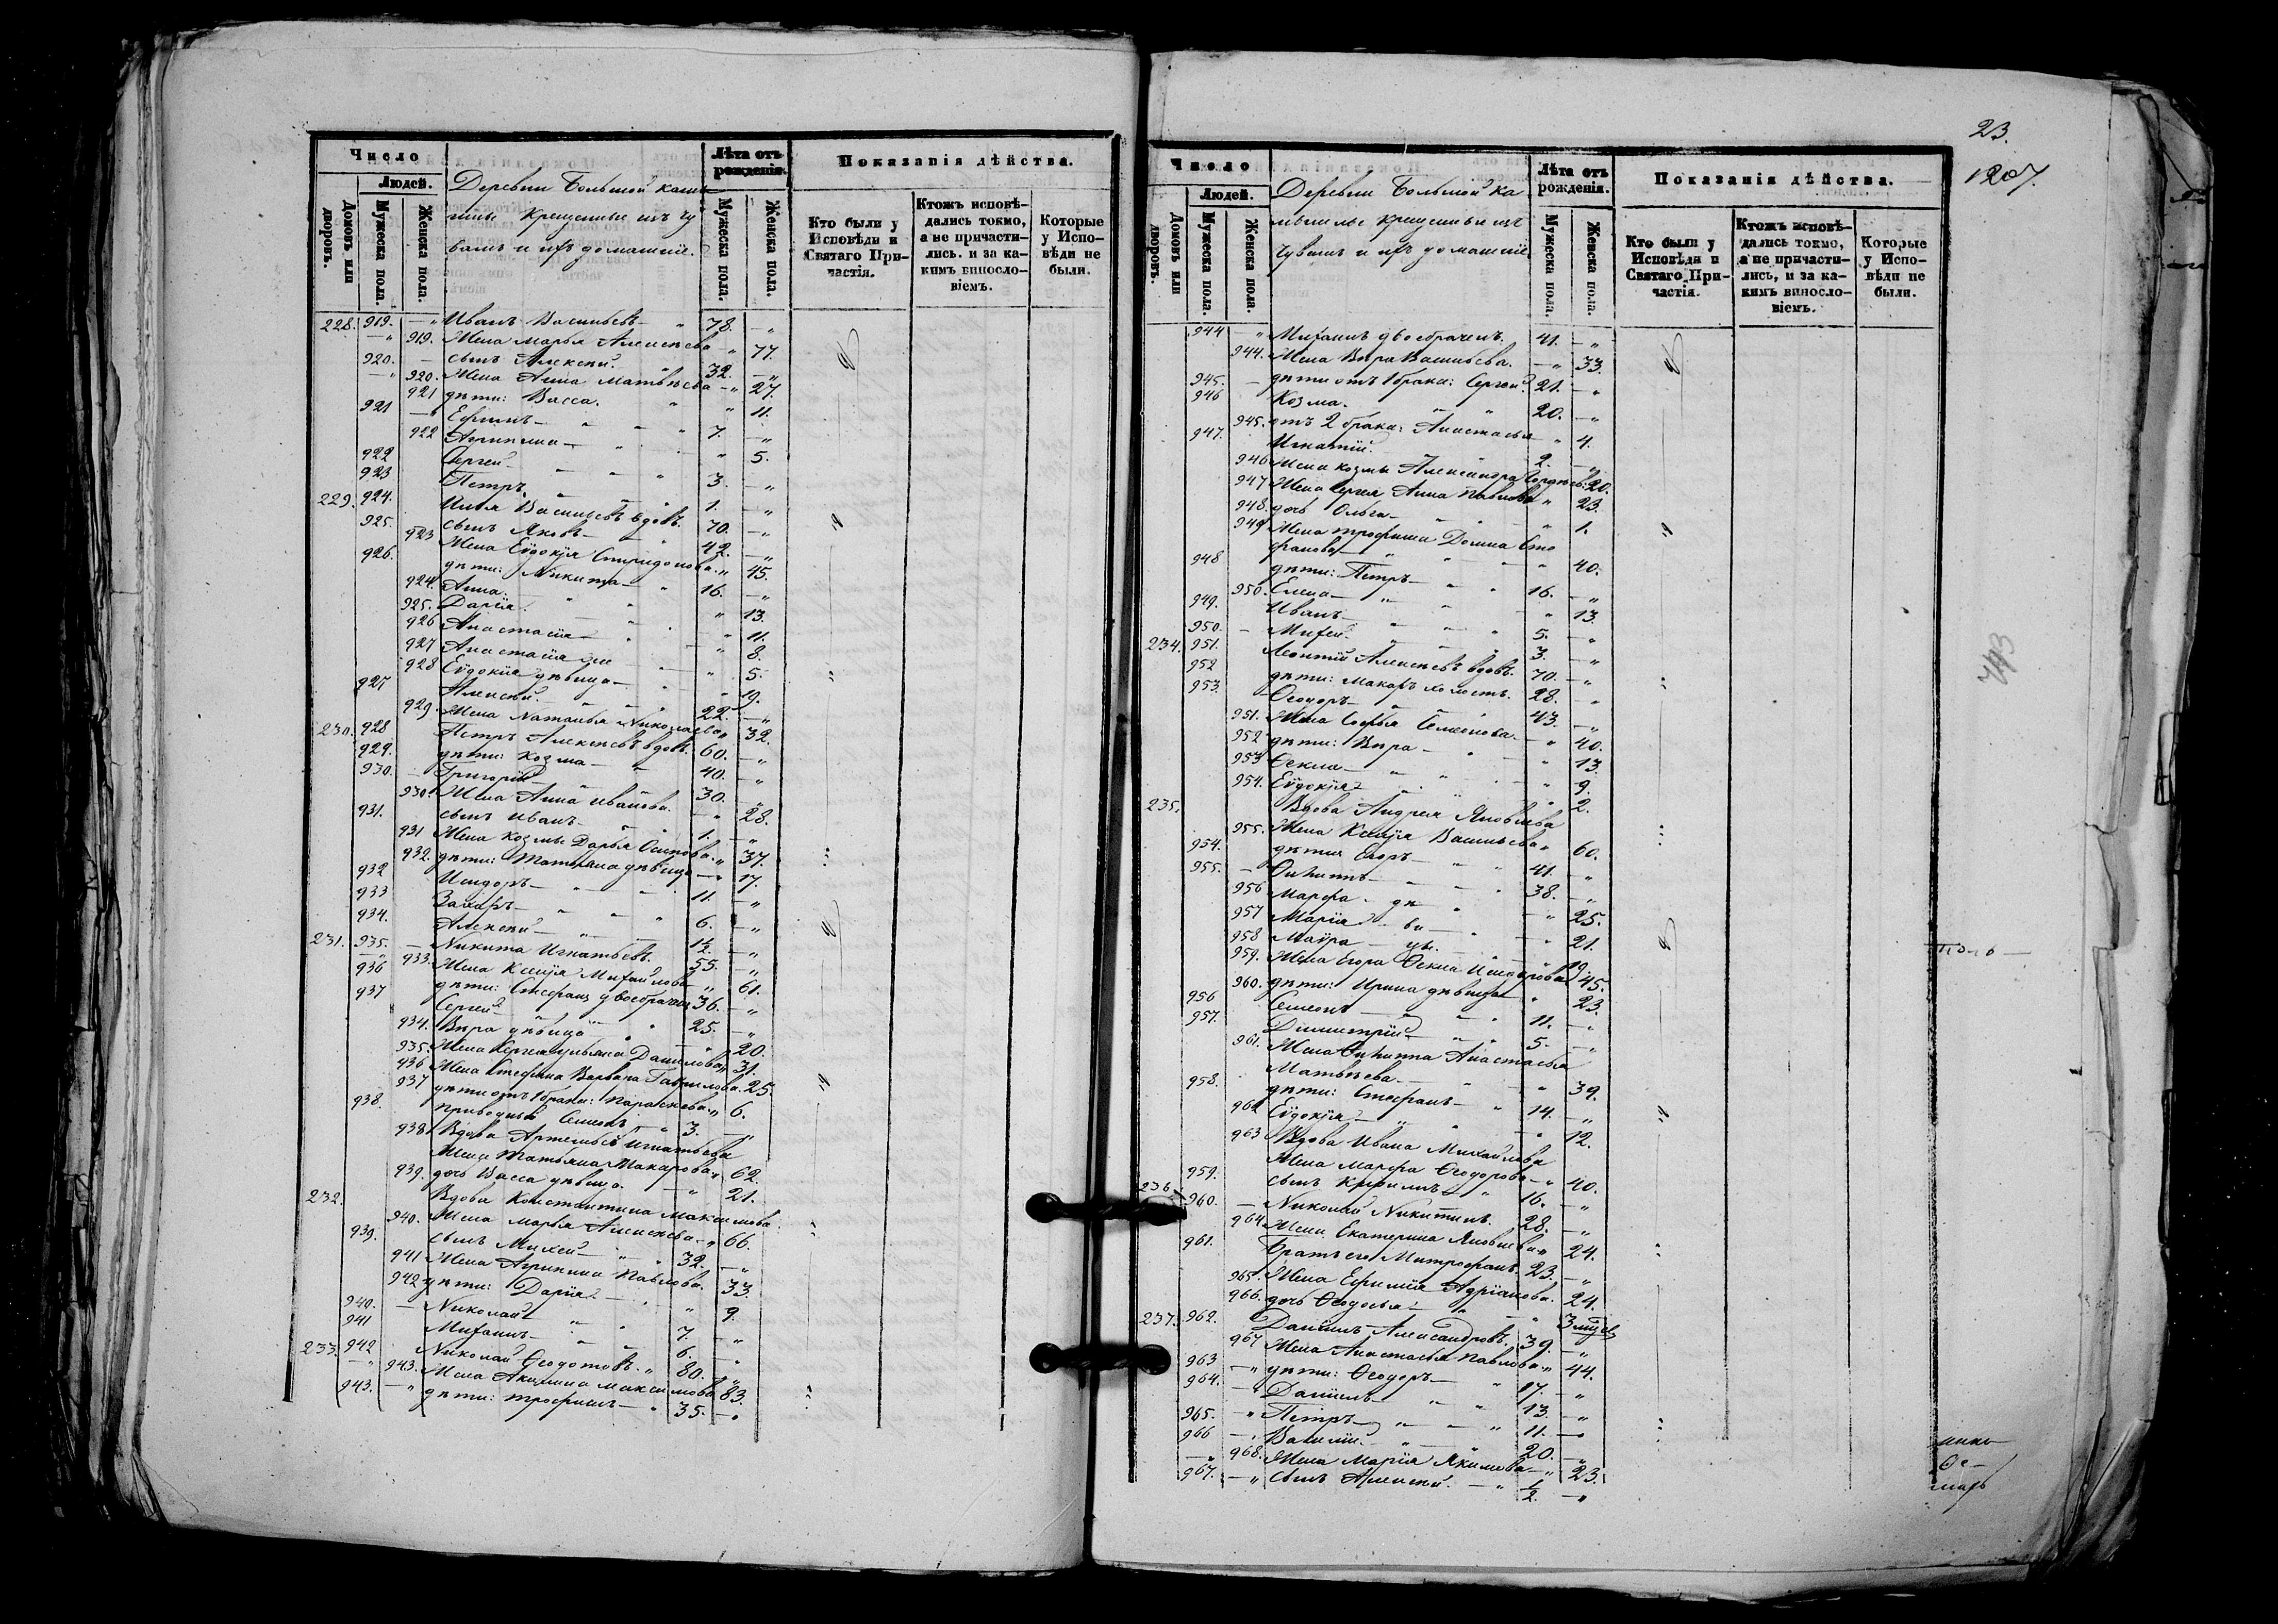 Число
Людей.
Домовъ или дворовъ.
Мужеска пола.
Женска пола.
Деревни Большой
крещеные изъ чу
вашъ и ихъ домашніе.
Лѣта отъ рожденія.
Мужеска пола.
Женска пола.
Показанія дѣйства.
Кто были у Исповѣди и Святаго Причастія.
Ктожъ исповѣдались токмо, а не причастились. и за какимъ винословіемъ.
Которые у Исповѣди не были.
228. 919. — " Иванъ Васильевъ — " 78. "
— " 919. Жена Марья Алексѣева " 77.
920. — сынъ Алексѣй. " 32. — "
— " 920. Жена Анна Матвѣева — " 27.
921 дѣти: Васса. " " 11.
921 — Ефимъ — " " 7. — "
922 Агрипина — " " 5.
922 Сергей — " " 3. — "
923 Петръ " " 1. — "
229. 924. Илья Васильевъ вдовъ. 70. — "
925. сынъ Яковъ — " 42. — "
923 Жена Евдокія Спиридонова. " 45.
926. дѣти: Никита — " 16. — "
924. Анна. " " 13.
925. Дарія. " " 11.
926 Анастасія — " 8.
927 Анастасія же — " 5.
928 Евдокія дѣвица — " 19.
927 Алексѣй. " 22. — "
929. Жена Наталья Николаева " 32.
230. 928 Петръ Алексѣевъ вдовъ. 60. — "
929. дѣти: Козма — " 40. — "
930. — Григорій — 30. "
930. Жена Анна Иванова. — " 28.
931. сынъ Иванъ — " 1. — "
931 Жена Козмы Дарья Осипова. " 37.
932. дѣти: Татьяна дѣвица — " 17.
932 Исидоръ — " " 11. — "
933 Захаръ — " " 6. — "
934. Алексѣй — " 1/2. — "
231. 935. — Никита Игнатьевъ. 55. — "
— " 933. Жена Ксенія Михайлова " 61.
936 дѣти: Стефанъ двоебраченъ 36. — "
937 Сергей — " " 25. — "
934. Вѣра дѣвица " — " 20.
935. Жена Сергея Ульяна Данилова " 31.
936 Жена Стефана Варвара Гаврилова. 25.
937 дѣти отъ 1 брака: Параскева — " 6.
938. приводный Семенъ — " 3. — "
938. Вдова Артемья Игнатьева
Жена Татьяна Макарова — " 62.
939. дочь Васса дѣвица. — " 21.
232. Вдова Константина Максимова.
940. Жена Марья Алексѣева — " 66.
939. сынъ Михей — " 32. — "
941 Жена Агрипина Павлова. 33.
942. дѣти: Дарія — " " 9.
940. — Николай " " 7. — "
941 Михаилъ — " " 6. — "
233. 942 Николай Ѳеодотовъ. " 80. "
— " 943. Жена Акилина Максимова 83.
943. — " дѣти: Трофимъ — " 35. — "
23.
1207.
Число
Людей.
Домовъ или дворовъ.
Мужеска пола.
Женска пола.
Деревни Большой Ка
крещеные изъ
Чувашъ и ихъ домашніе
Лѣта отъ рожденія.
Мужеска пола.
Женска пола.
Показанія дѣйства.
Кто были у Исповѣди и Святаго Причастія.
Ктожъ исповѣдались токмо, а не причастились, и за какимъ винословіемъ.
Которые у Исповѣди не были.
944 — " Михаилъ двоебраченъ. 41. — "
944. Жена Вѣра Васильева. — " 33.
945. — дѣти отъ 1 брака: Сергей. 21. — "
946 Козма. " " 20. — "
945. отъ 2 брака: Анастасья — " 4.
947. Игнатій. " 2. — "
946 Жена Козмы Александра 20.
947 Жена Сергея Анна Павлова " 23.
948. дочь Ольга — " " 1.
949 Жена Трофима Домна Сте
фанова — " " 40.
948 дѣти: Петръ — " 16. — "
950. Елена — " " 13.
949. Иванъ — " " 5. — "
950. — Михей. " " 3. — "
234. 951. Леонтій Алексѣевъ вдовъ. 70. — "
952 дѣти: Макаръ холостъ. 28. "
953. Ѳеодоръ — " 43. — "
951. Жена Софья Семенова — " 40.
952 дѣти: Вѣра — " " 13.
953 Ѳекла — " " 9.
954. Евдокія " " 2.
235. Вдова Андрея Яковлева
955. Жена Ксенія Васильева " 60.
954. дѣти Егоръ — " 41. — "
955. — Филиппъ — " 38. — "
956 Марфа — дѣ " — " 25.
957 Марія — ви — " 21.
958 Мавра — цы. " 19.
959. Жена Егора Ѳекла Исидорова 45.
960. дѣти: Ирина дѣвица " 23.
956 Семенъ — " " 11. — "
957. Димитрій " " 5. — "
961. Жена Филиппа Анастасья
Матвѣева. — " " 39.
958. дѣти: Стефанъ — " 14. — "
962 Евдокія — " " 12.
963 Вдова Ивана Михайлова
Жена Марфа Ѳеодорова — " 40.
959. сынъ Кирилъ — " 16. — "
236 960. — Николай Никитинъ. 28. — "
964 Жена Екатерина Яковлева " 24.
961. братъ его Митрофанъ. 23. — "
965. Жена Ефимія Адріанова. 24.
966. дочь Ѳеодосья — " " 3 мѣс
237. 962. Даніилъ Александровъ. 39. — "
967 Жена Анастасья Павлова — " 44.
963 — " дѣти: Ѳеодоръ — " 17. — "
964. — " Даніилъ — " " 13. — "
965. — " Петръ — " " 11. — "
966 — " Василій. " 20. — "
— " 968. Жена Марія Якимова — " 23.
967. — " сынъ Алексѣй. — " 1/2. — "